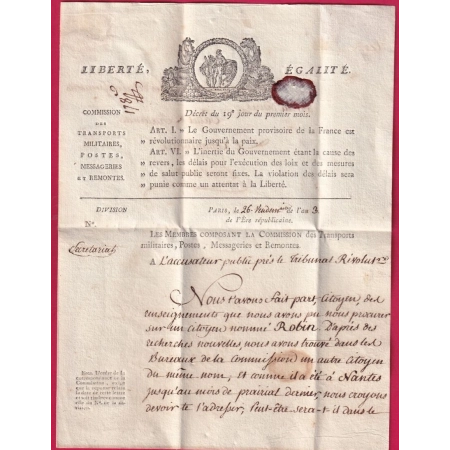 LIBERTÉ, ÉGALITÉ.
Décret du 19e jour du premier mois.
COMMISSION
DES
TRANSPORTS
MILITAIRES,
POSTES,
MESSAGERIES
ET REMONTES.
ART. I. » Le Gouvernement provisoire de la France est
» révolutionnaire jusqu'à la paix.
ART. VI. » L'inertie du Gouvernement étant la cause des
» revers, les délais pour l'exécution des lois et des mesures
» de salut public seront fixés. La violation des délais sera
» punie comme un attentat à la Liberté.
DIVISION
PARIS, le 26 Vendémiaire de l'an 3
de l'Ère républicaine.
N°.
Secretariat
LES MEMBRES COMPOSANT LA COMMISSION des Transports
militaires, Postes, Messageries et Remontes
A L'accusateur public près le Tribunal Révolut.re
Nous t'avons fait part, Citoyen, des
renseignements que nous avons pu nous procurer
sur un Citoyen nommé Robin. D'après des
recherches nouvelles, nous avons trouvé dans les
Bureaux de la Commission un autre Citoyen
du même nom, et comme il a été à Nantes
jusqu'au mois de prairial dernier, nous croyons
devoir te l'adresser, Peut-être sera-t-il dans le